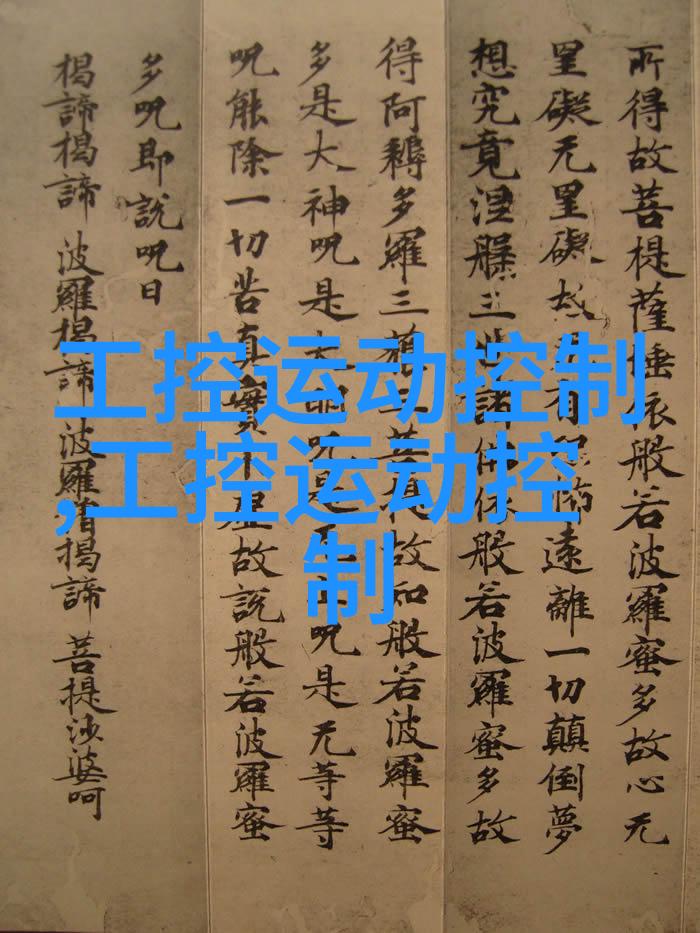 工控运动控制
,工控运动控
制
所得故菩提薩埵依般若波羅蜜多故心无
罣礙无罣礙故有怖遠離一切顛倒夢
想究竟涅槃三世諸佛依般若波羅蜜多故
得阿耨多羅三藐三菩提故知般若波羅蜜
多是大神呪是大明呪是呪是无等等
呪能除一切苦真實不虛故說般若波羅蜜
多呪即說呪曰
揭諦揭諦 波羅揭諦 波羅僧揭諦 菩提沙婆呵